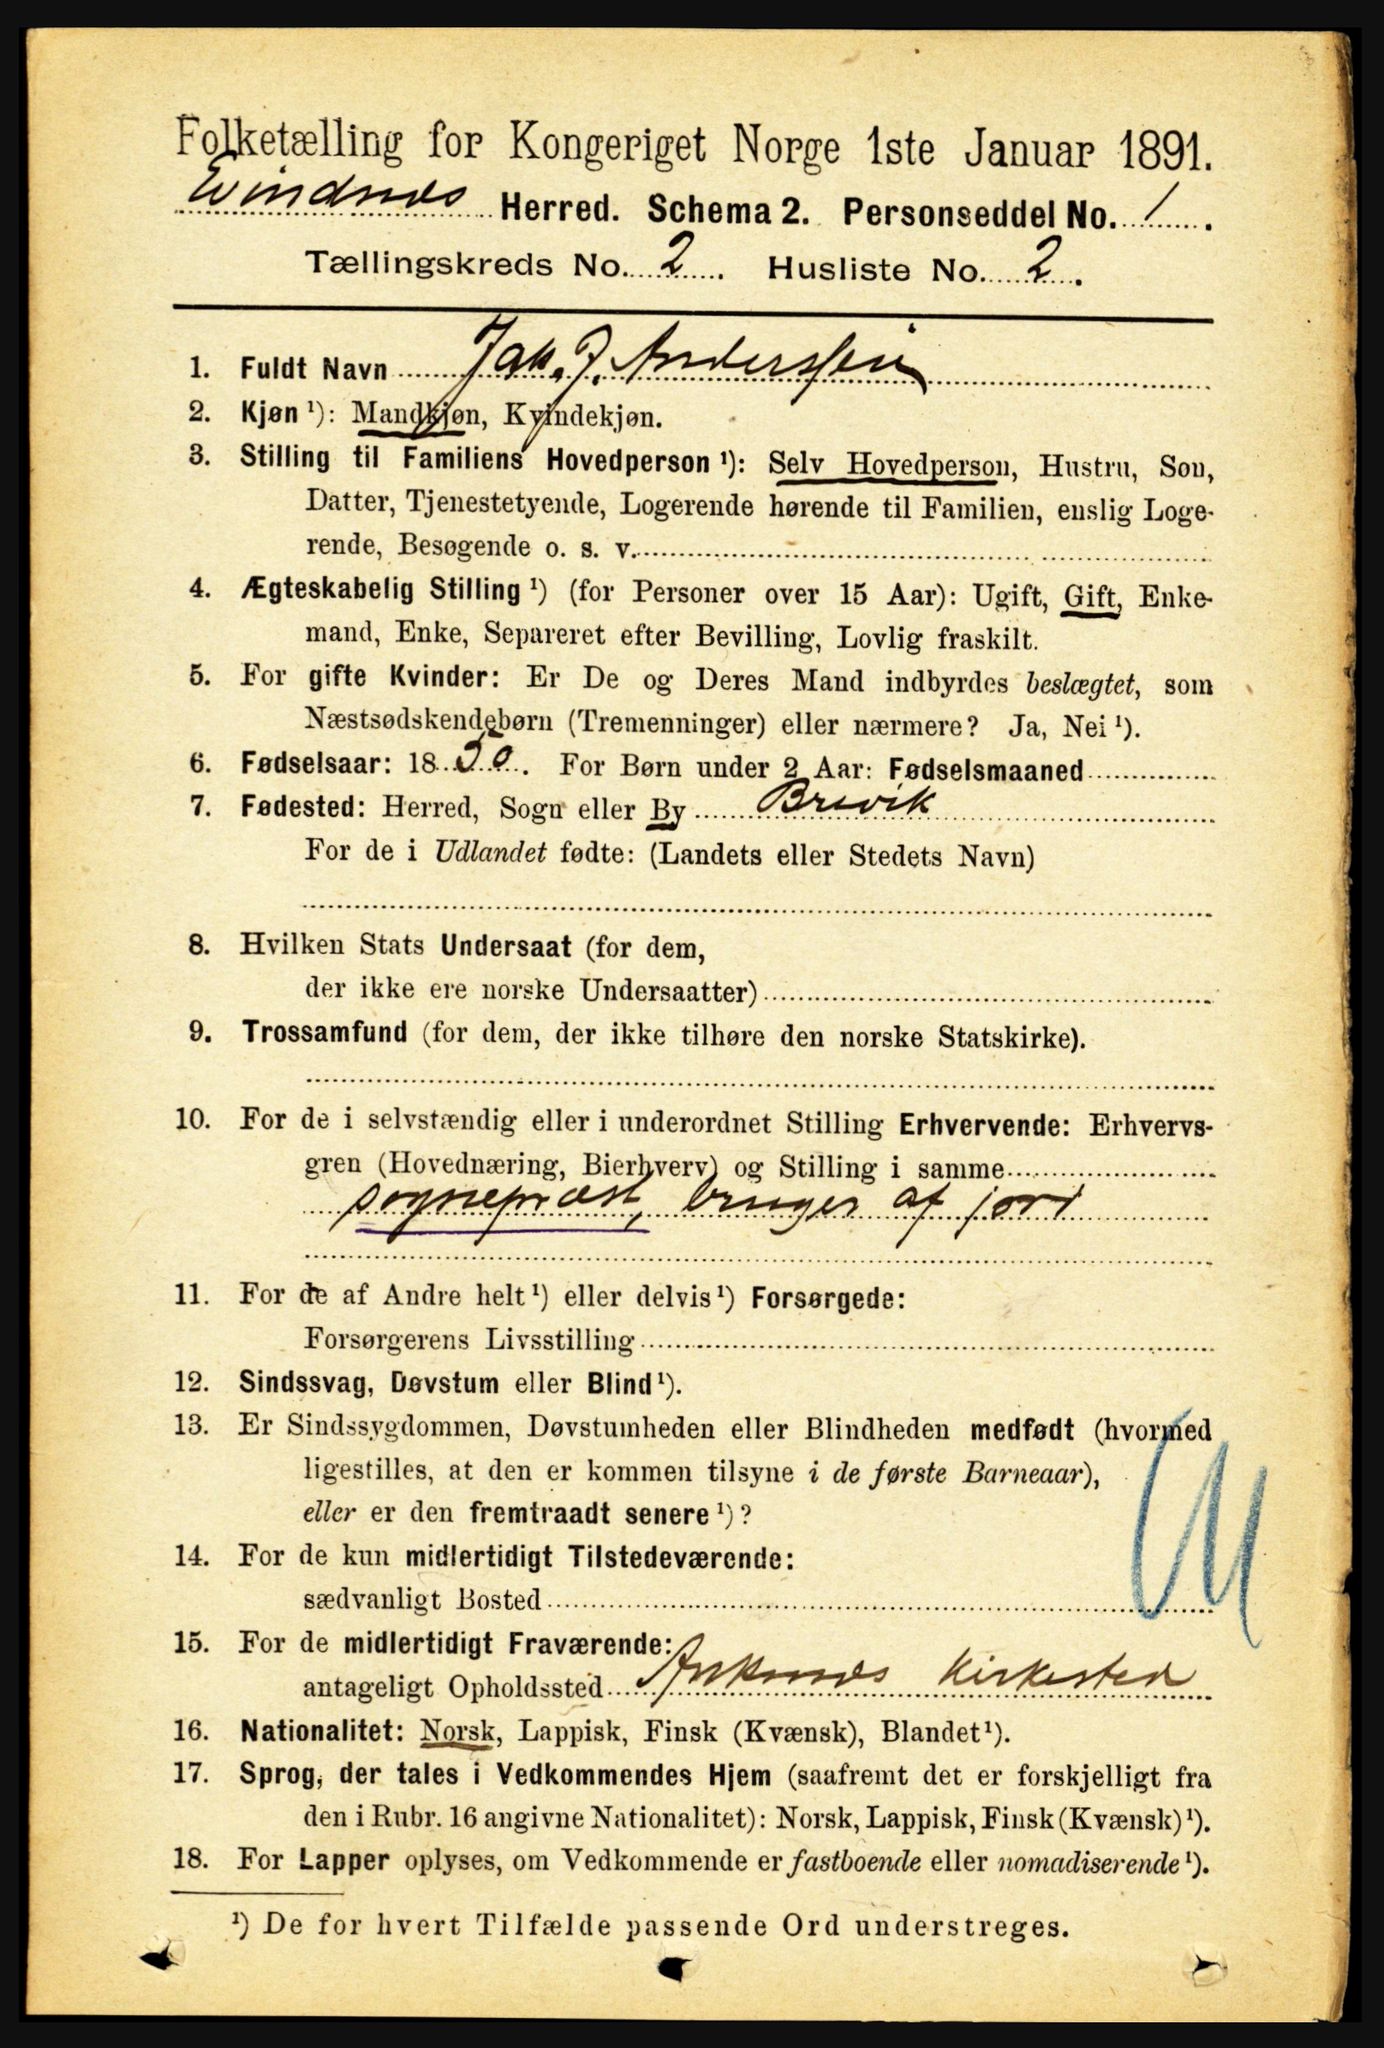 Folketælling for Kongeriget Norge 1ste Januar 1891.
Evindnes Herred. Schema 2. Personseddel No. 1.
Tællingskreds No. 2. Husliste No. 2.
1. Fuldt Navn Jak. J. Anderssen
2. Kjøn ¹): Mandkjøn, Kvindekjøn.
3. Stilling til Familiens Hovedperson ¹): Selv Hovedperson, Hustru, Søn,
Datter, Tjenestetyende, Logerende hørende til Familien, enslig Loge-
rende, Besøgende o. s. v.
4. Ægteskabelig Stilling ¹) (for Personer over 15 Aar): Ugift, Gift, Enke-
mand, Enke, Separeret efter Bevilling, Lovlig fraskilt.
5. For gifte Kvinder: Er De og Deres Mand indbyrdes beslægtet, som
Næstsødskendebørn (Tremenninger) eller nærmere? Ja, Nei ¹).
6. Fødselsaar: 1830. For Børn under 2 Aar: Fødselsmaaned
7. Fødested: Herred, Sogn eller By Brevik
For de i Udlandet fødte: (Landets eller Stedets Navn)
8. Hvilken Stats Undersaat (for dem,
der ikke ere norske Undersaatter)
9. Trossamfund (for dem, der ikke tilhøre den norske Statskirke).
10. For de i selvstændig eller i underordnet Stilling Erhvervende: Erhvervs-
gren (Hovednæring, Bierhverv) og Stilling i samme
sognepræst, bruger af jord
11. For de af Andre helt ¹) eller delvis ¹) Forsørgede:
Forsørgerens Livsstilling
12. Sindssvag, Døvstum eller Blind ¹).
13. Er Sindssygdommen, Døvstumheden eller Blindheden medfødt (hvormed
ligestilles, at den er kommen tilsyne i de første Barneaar),
eller er den fremtraadt senere ¹)?
14. For de kun midlertidigt Tilstedeværende:
sædvanligt Bosted
15. For de midlertidigt Fraværende:
antageligt Opholdssted Ankenæs Kirkested
16. Nationalitet: Norsk, Lappisk, Finsk (Kvænsk), Blandet ¹).
17. Sprog, der tales i Vedkommendes Hjem (saafremt det er forskjelligt fra
den i Rubr. 16 angivne Nationalitet): Norsk, Lappisk, Finsk (Kvænsk) ¹).
18. For Lapper oplyses, om Vedkommende er fastboende eller nomadiserende ¹).
¹) De for hvert Tilfælde passende Ord understreges.